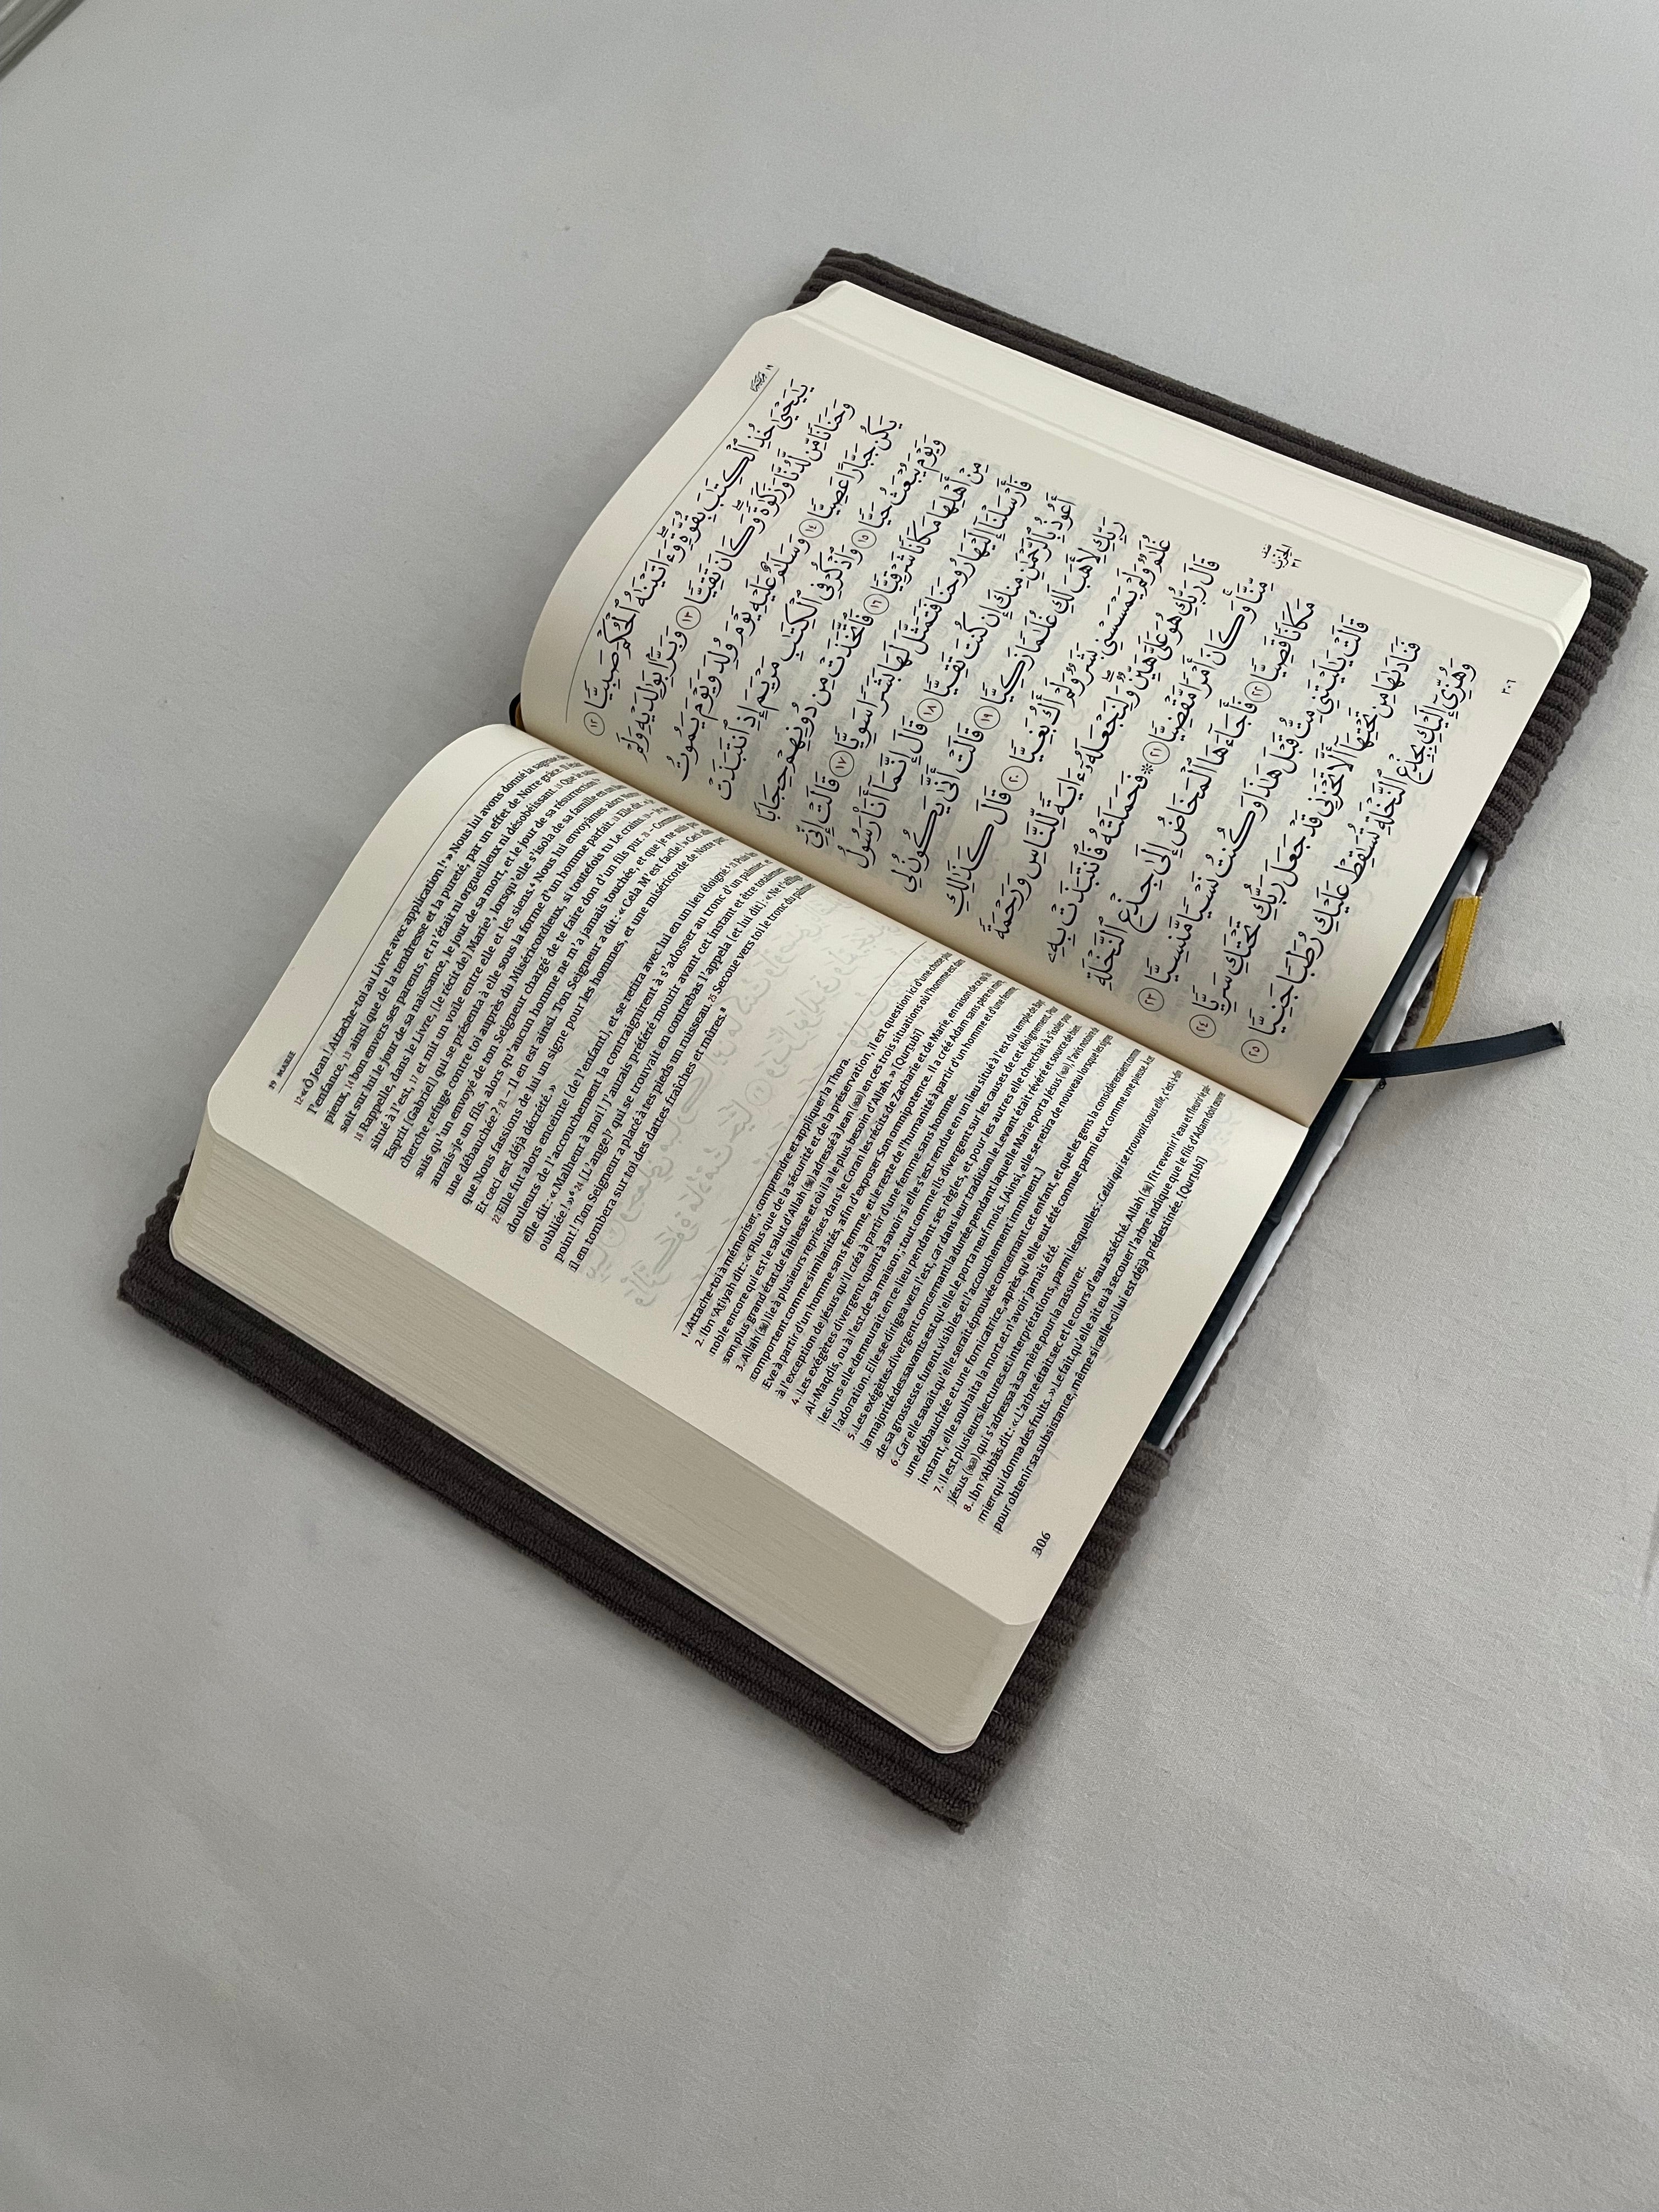 19 MARIE
12 «Ô Jean! Attache-toi au Livre avec application!¹» Nous lui avons donné la sagesse
l'enfance, 13 ainsi que de la tendresse et la pureté, par un effet de Notre grâce. Il
pieux, 14 bon envers ses parents, et n'était ni orgueilleux ni désobéissant. 15 Que
soit sur lui le jour de sa naissance, le jour de sa mort, et le jour de sa résurrection²
16 Rappelle, dans le Livre, [le récit de] Marie³, lorsqu'elle s'isola de sa famille
situé à l'est, 17 et mit un voile entre elle et les siens.⁴ Nous lui envoyâmes alors Notre
Esprit [Gabriel] qui se présenta à elle sous la forme d'un homme parfait. 18 Elle dit:
cherche refuge contre toi auprès du Miséricordieux, si toutefois tu Le crains. 19
suis qu'un envoyé de ton Seigneur chargé de te faire don d'un fils pur. 20 – Comment
aurais-je un fils, alors qu'aucun homme ne m'a jamais touchée, et que je ne suis pas
une débauchée? 21 – Il en est ainsi. Ton Seigneur a dit: «Cela M'est facile!» Ceci afin
que Nous fassions de lui un signe pour les hommes, et une miséricorde de Notre part.
Et ceci est déjà décrété.»
22 Elle fut alors enceinte [de l'enfant], et se retira avec lui en un lieu éloigné.⁵ 23 Puis les
douleurs de l'accouchement la contraignirent à s'adosser au tronc d'un palmier, et
elle dit: «Malheur à moi! J'aurais préféré mourir avant cet instant et être totalement
oubliée!»⁶ 24 [L'ange]⁷ qui se trouvait en contrebas l'appela [et lui dit]: «Ne t'afflige
point! Ton Seigneur a placé à tes pieds un ruisseau. 25 Secoue vers toi le tronc du palmier
il en tombera sur toi des dattes fraîches et mûres.⁸
1. Attache-toi à mémoriser, comprendre et appliquer la Thora.
2. Ibn ʿAṭiyah dit: «Plus que de la sécurité et de la préservation, il est question ici d'une chose plus
noble encore qui est le salut d'Allah (ﷻ) adressé à Jean en ces trois situations où l'homme est dans
son plus grand état de faiblesse et où il a le plus besoin d'Allah.» [Qurtubî]
3. Allah (ﷻ) lie à plusieurs reprises dans le Coran les récits de Zacharie et de Marie, en raison de ce qu'ils
comportent comme similarités, afin d'exposer Son omnipotence. Il a créé Adam sans père ni mère,
Ève à partir d'un homme sans femme, et le reste de l'humanité à partir d'un homme et d'une femme
à l'exception de Jésus qu'Il créa à partir d'une femme sans homme.
4. Les exégètes divergent quant à savoir si elle s'est rendue en un lieu situé à l'est du temple de Bayt
Al-Maqdis, ou à l'est de sa maison; tout comme ils divergent sur les causes de cet éloignement. Pour
les uns elle demeurait en ce lieu pendant ses règles, et pour les autres elle cherchait à s'isoler pour
l'adoration. Elle se dirigea vers l'est, car dans leur tradition le Levant était révéré et source de bien.
5. Les exégètes divergent concernant la durée pendant laquelle Marie porta Jésus, l'avis notoire de
la majorité des savants est qu'elle le porta neuf mois. [Ainsi, elle se retira de nouveau lorsque les signes
de sa grossesse furent visibles et l'accouchement imminent.]
6. Car elle savait qu'elle serait éprouvée concernant cet enfant, et que les gens la considéreraient comme
une débauchée et une fornicatrice, après qu'elle eut été connue parmi eux comme une pieuse. À cet
instant, elle souhaita la mort et n'avoir jamais été.
7. Il est plusieurs lectures et interprétations, parmi lesquelles: Celui qui se trouvait sous elle, c'est-à-dire
Jésus qui s'adressa à sa mère, pour la rassurer.
8. Ibn ʿAbbâs dit: «L'arbre était sec et le cours d'eau asséché. Allah (ﷻ) fit revenir l'eau et fleurir le pal-
mier qui donna des fruits.» Le fait qu'elle ait eu à secouer l'arbre indique que le fils d'Adam doit œuvrer
pour obtenir sa subsistance, même si celle-ci lui est déjà prédestinée. [Qurtubî]
306
١٩
يَٰيَحۡيَىٰ خُذِ ٱلۡكِتَٰبَ بِقُوَّةٖۖ وَءَاتَيۡنَٰهُ ٱلۡحُكۡمَ صَبِيّٗا ١٢
وَحَنَانٗا مِّن لَّدُنَّا وَزَكَوٰةٗۖ وَكَانَ تَقِيّٗا ١٣ وَبَرَّۢا بِوَٰلِدَيۡهِ وَلَمۡ
يَكُن جَبَّارًا عَصِيّٗا ١٤ وَسَلَٰمٌ عَلَيۡهِ يَوۡمَ وُلِدَ وَيَوۡمَ يَمُوتُ
وَيَوۡمَ يُبۡعَثُ حَيّٗا ١٥ وَٱذۡكُرۡ فِي ٱلۡكِتَٰبِ مَرۡيَمَ إِذِ ٱنتَبَذَتۡ
مِنۡ أَهۡلِهَا مَكَانٗا شَرۡقِيّٗا ١٦ فَٱتَّخَذَتۡ مِن دُونِهِمۡ حِجَابٗا
فَأَرۡسَلۡنَآ إِلَيۡهَا رُوحَنَا فَتَمَثَّلَ لَهَا بَشَرٗا سَوِيّٗا ١٧ قَالَتۡ إِنِّيٓ
أَعُوذُ بِٱلرَّحۡمَٰنِ مِنكَ إِن كُنتَ تَقِيّٗا ١٨ قَالَ إِنَّمَآ أَنَا۠ رَسُولُ
رَبِّكِ لِأَهَبَ لَكِ غُلَٰمٗا زَكِيّٗا ١٩ قَالَتۡ أَنَّىٰ يَكُونُ لِي
غُلَٰمٞ وَلَمۡ يَمۡسَسۡنِي بَشَرٞ وَلَمۡ أَكُ بَغِيّٗا ٢٠ قَالَ كَذَٰلِكِ
قَالَ رَبُّكِ هُوَ عَلَيَّ هَيِّنٞۖ وَلِنَجۡعَلَهُۥٓ ءَايَةٗ لِّلنَّاسِ وَرَحۡمَةٗ
مِّنَّاۚ وَكَانَ أَمۡرٗا مَّقۡضِيّٗا ٢١ ۞ فَحَمَلَتۡهُ فَٱنتَبَذَتۡ بِهِۦ
مَكَانٗا قَصِيّٗا ٢٢ فَأَجَآءَهَا ٱلۡمَخَاضُ إِلَىٰ جِذۡعِ ٱلنَّخۡلَةِ
قَالَتۡ يَٰلَيۡتَنِي مِتُّ قَبۡلَ هَٰذَا وَكُنتُ نَسۡيٗا مَّنسِيّٗا ٢٣
فَنَادَىٰهَا مِن تَحۡتِهَآ أَلَّا تَحۡزَنِي قَدۡ جَعَلَ رَبُّكِ تَحۡتَكِ سَرِيّٗا ٢٤
وَهُزِّيٓ إِلَيۡكِ بِجِذۡعِ ٱلنَّخۡلَةِ تُسَٰقِطۡ عَلَيۡكِ رُطَبٗا جَنِيّٗا ٢٥
٣٠٦